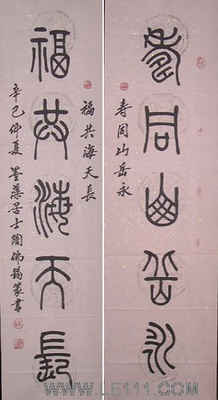 壽同山岳永
壽同山岳永
福共海天長
福共海天長
辛巳仲夏
陶佛錫篆書
WWW.LE111.COM